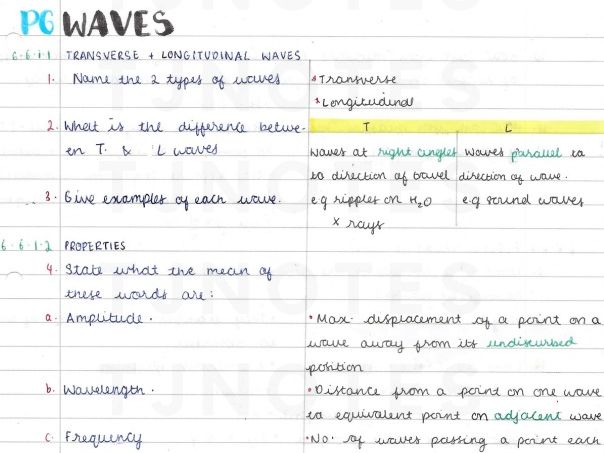 P6 WAVES
6·6·1·1 TRANSVERSE + LONGITUDINAL WAVES
1. Name the 2 types of waves * Transverse
* Longitudinal
2. What is the difference betwe- T L
en T. & L waves waves at right angles waves parallel to
to direction of travel direction of wave.
3. Give examples of each wave. e.g ripples on H₂O e.g sound waves
x rays
6·6·1·2 PROPERTIES
4. State what the mean of
these words are:
a. Amplitude. • Max. displacement of a point on a
wave away from its undisturbed
position
b. Wavelength. • Distance from a point on one wave
to equivalent point on adjacent wave
c. Frequency • No. of waves passing a point each
TJNOTES
TJNOTES
TJNOTES
TJNOTES